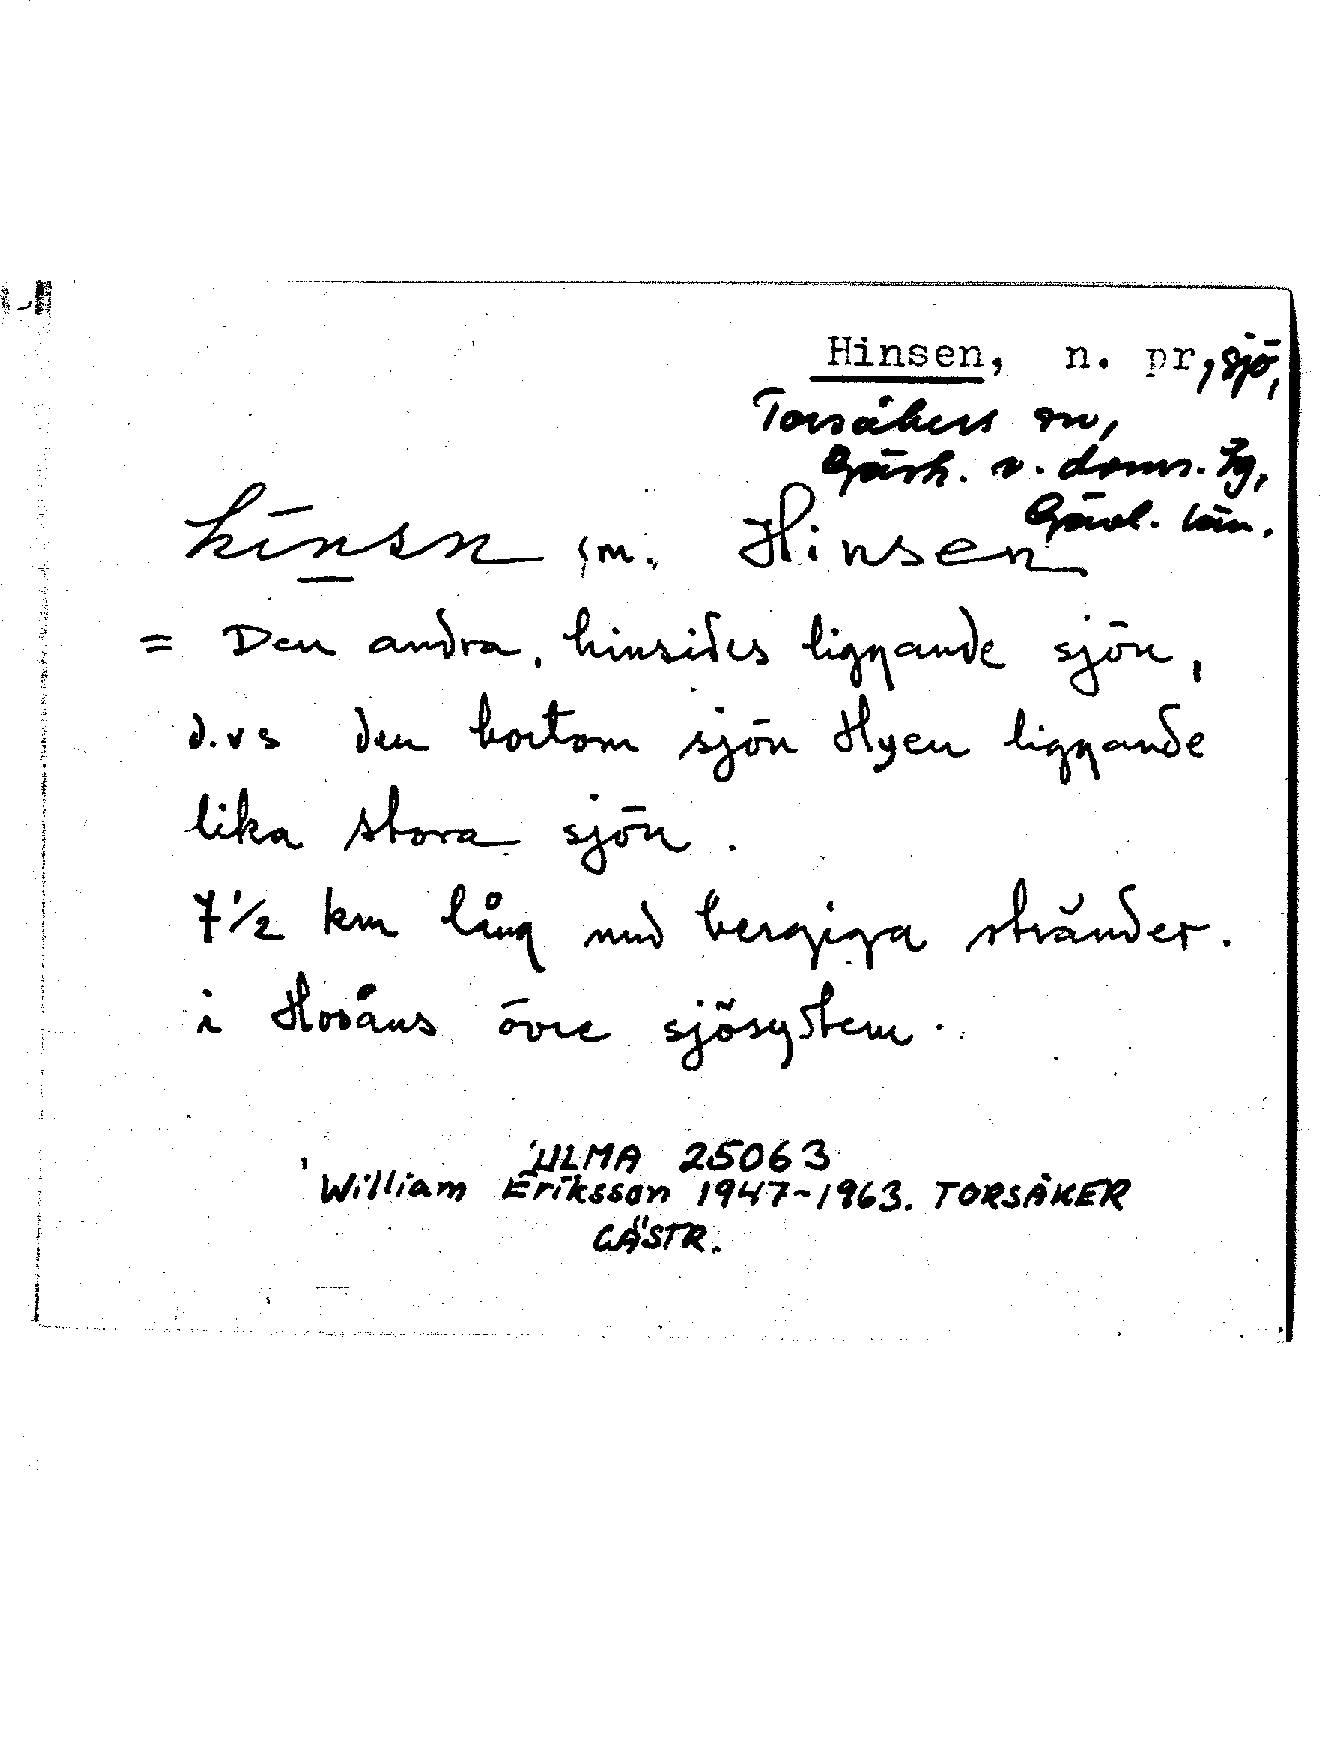 Hinsen, n. pr, sjö,
Torsåkers sn,
Gästr. v. doms. tg,
Gävl. län.
hinsn, m. Hinsen
= Den andra, hinsides liggande sjön,
d.v s den bortom sjön Hyen liggande
lika stora sjön.
7 1/2 km lång med bergiga stränder.
i Hoåns övre sjösystem.
ULMA 25063
William Eriksson 1947-1963. TORSÅKER
GÄSTR.